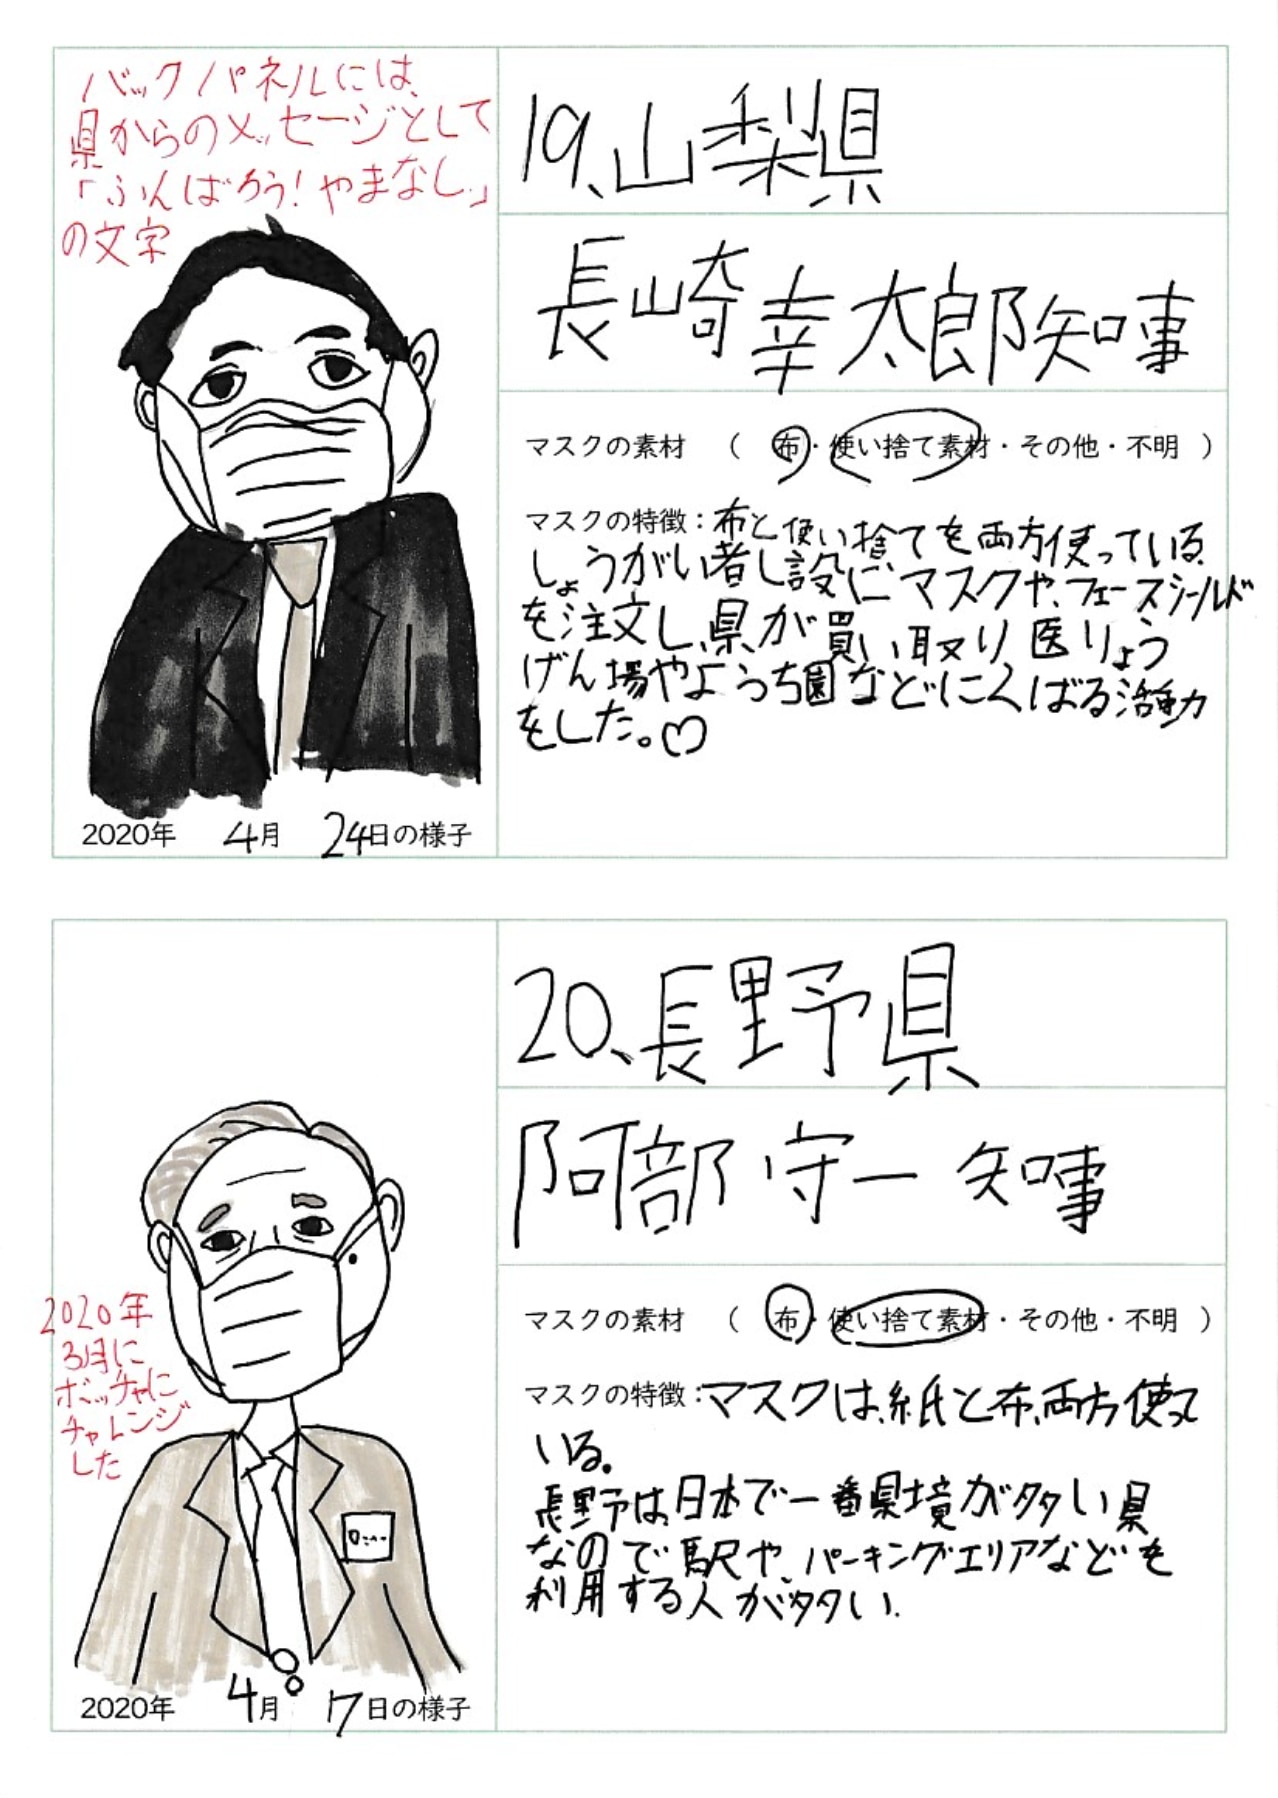 バックパネルには、
県からのメッセージとして
「ふんばろう!やまなし」
の文字
19、山梨県
長崎幸太郎知事
マスクの素材 ( 布・使い捨て素材・その他・不明 )
マスクの特徴:布と使い捨てを両方使っている。
しょうがい者し設にマスクや、フェースシールド
を注文し、県が買い取り医りょう
げん場やようち園などにくばる活動
をした。♡
2020年 4月 24日の様子
20、長野県
阿部守一 知事
マスクの素材 ( 布・使い捨て素材・その他・不明 )
マスクの特徴:マスクは、紙と布、両方使って
いる。
長野は、日本で一番県境が多い県
なので駅や、パーキングエリアなどを
利用する人が多い。
2020年
3月に
ボッチャに
チャレンジ
した
2020年 4月 17日の様子